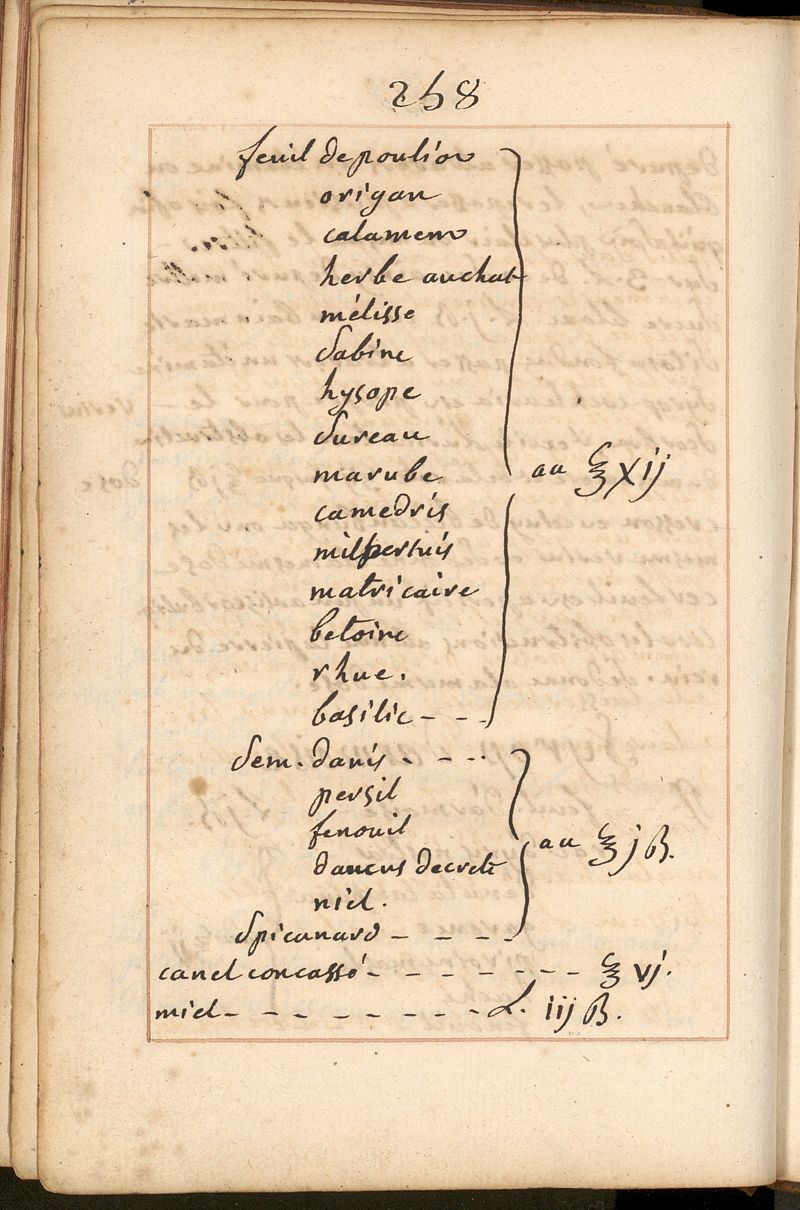 258
feuil de poulion
origan
calamene
herbe au chat
mélisse
Sabine
hysope
Sureau
marube aa ℥ Xij
camedris
milpertuis
matricaire
betoine
rhue.
basilic - - -
Sem. danis - - - -
persil
fenouil
daucus de crete aa ℥ j ß.
niel.
Spicanard - - - -
canel concassé - - - - - - - ℥ vj.
miel - - - - - - - - L. iij ß.